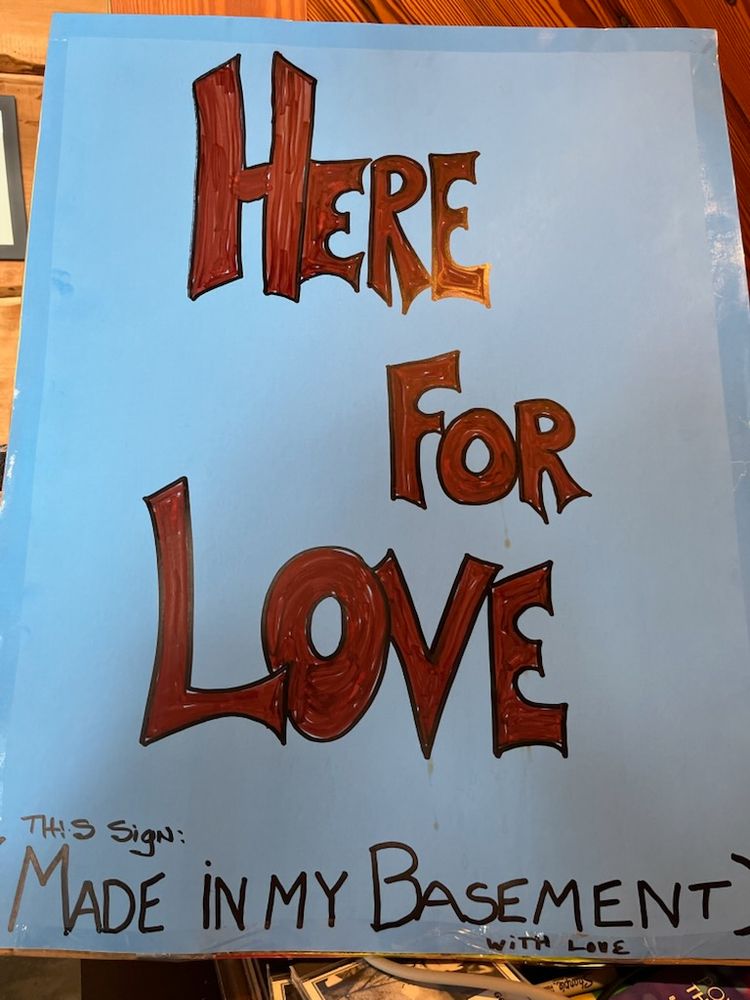 HERE
FOR
LOVE
THIS SiGN:
(MADE iN MY BASEMENT)
WiTH LOVE